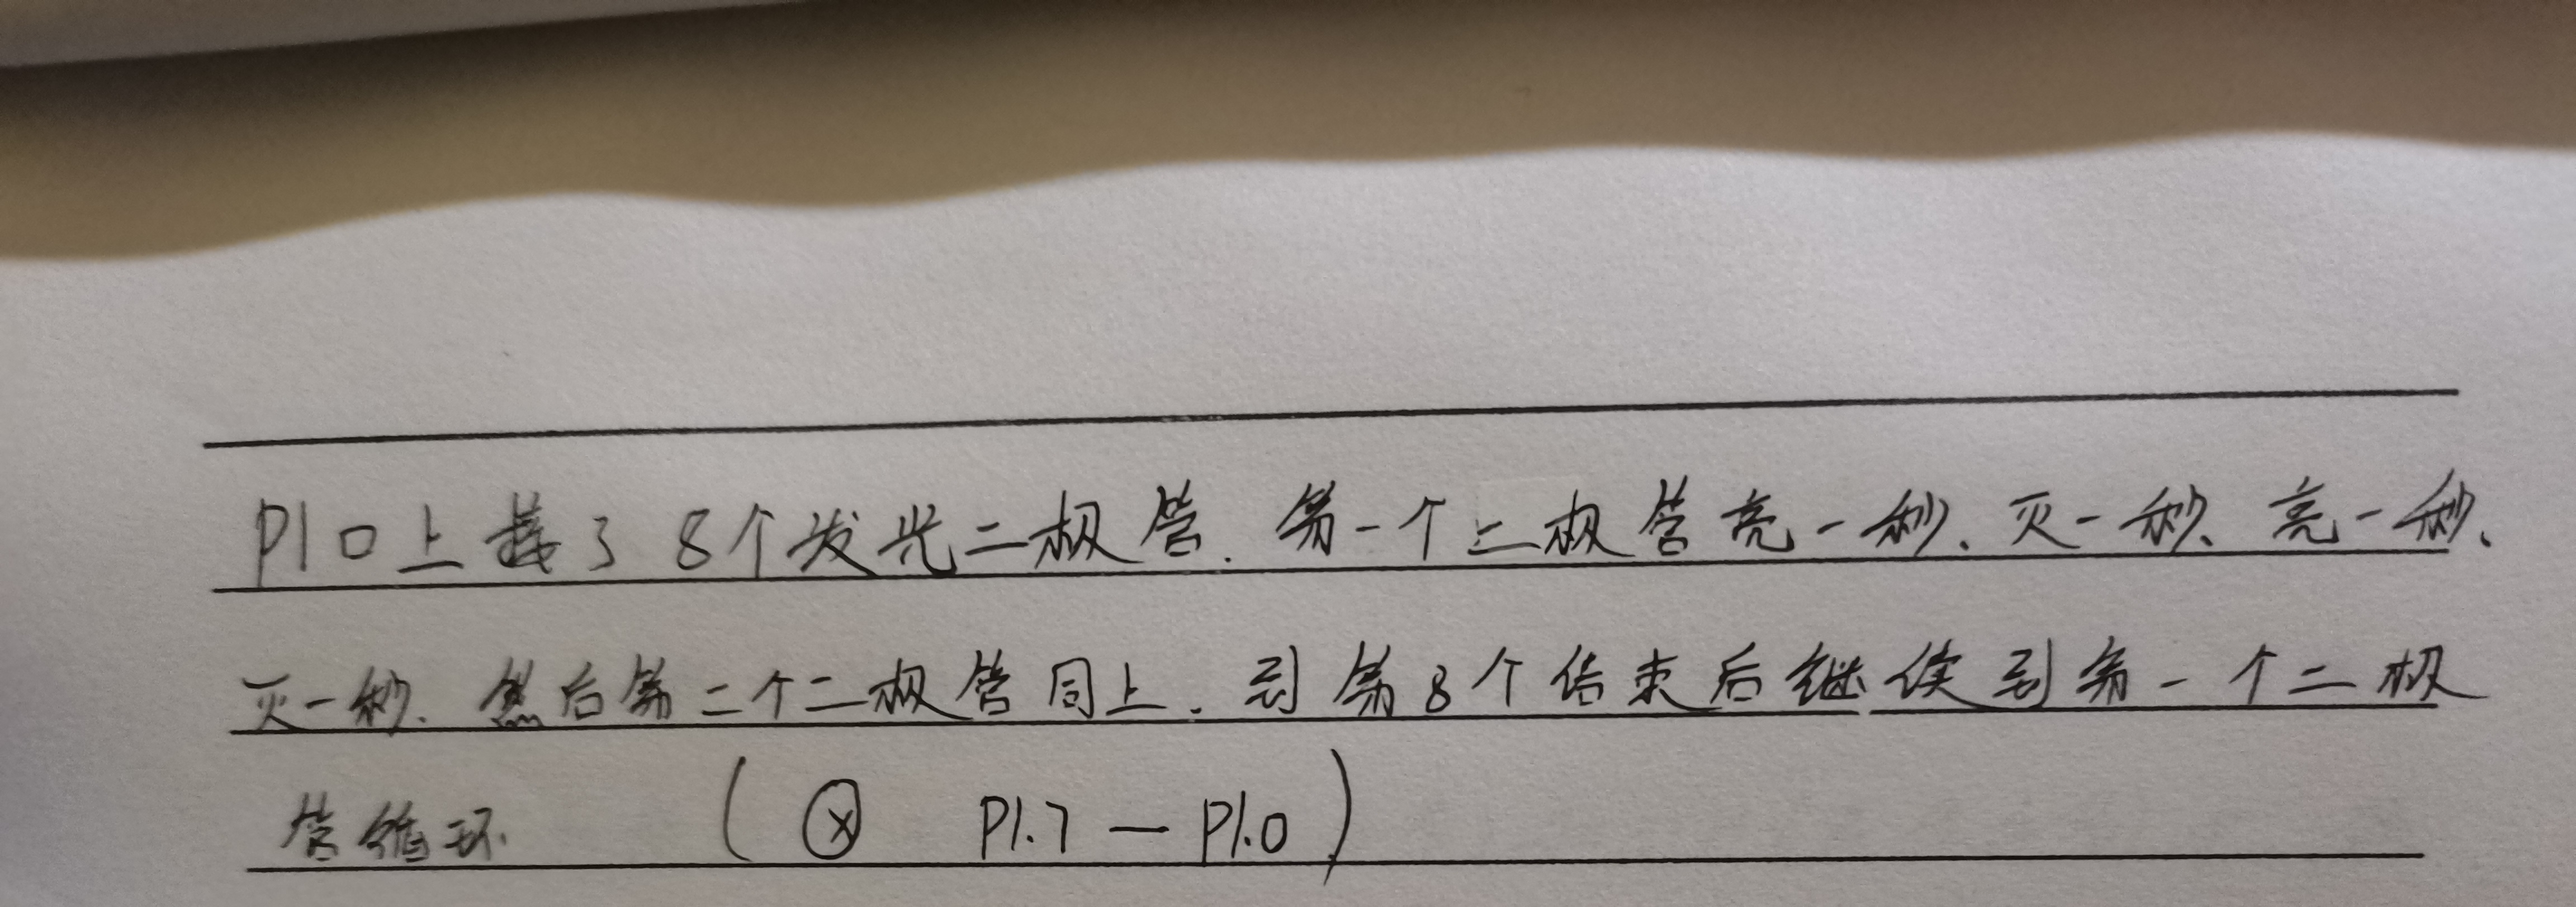 P1口上接了8个发光二极管.第一个二极管亮一秒、灭一秒、亮一秒、
灭一秒.然后第二个二极管同上.到第8个结束后继续到第一个二极
管循环 (ⓧ P1.7—P1.0)